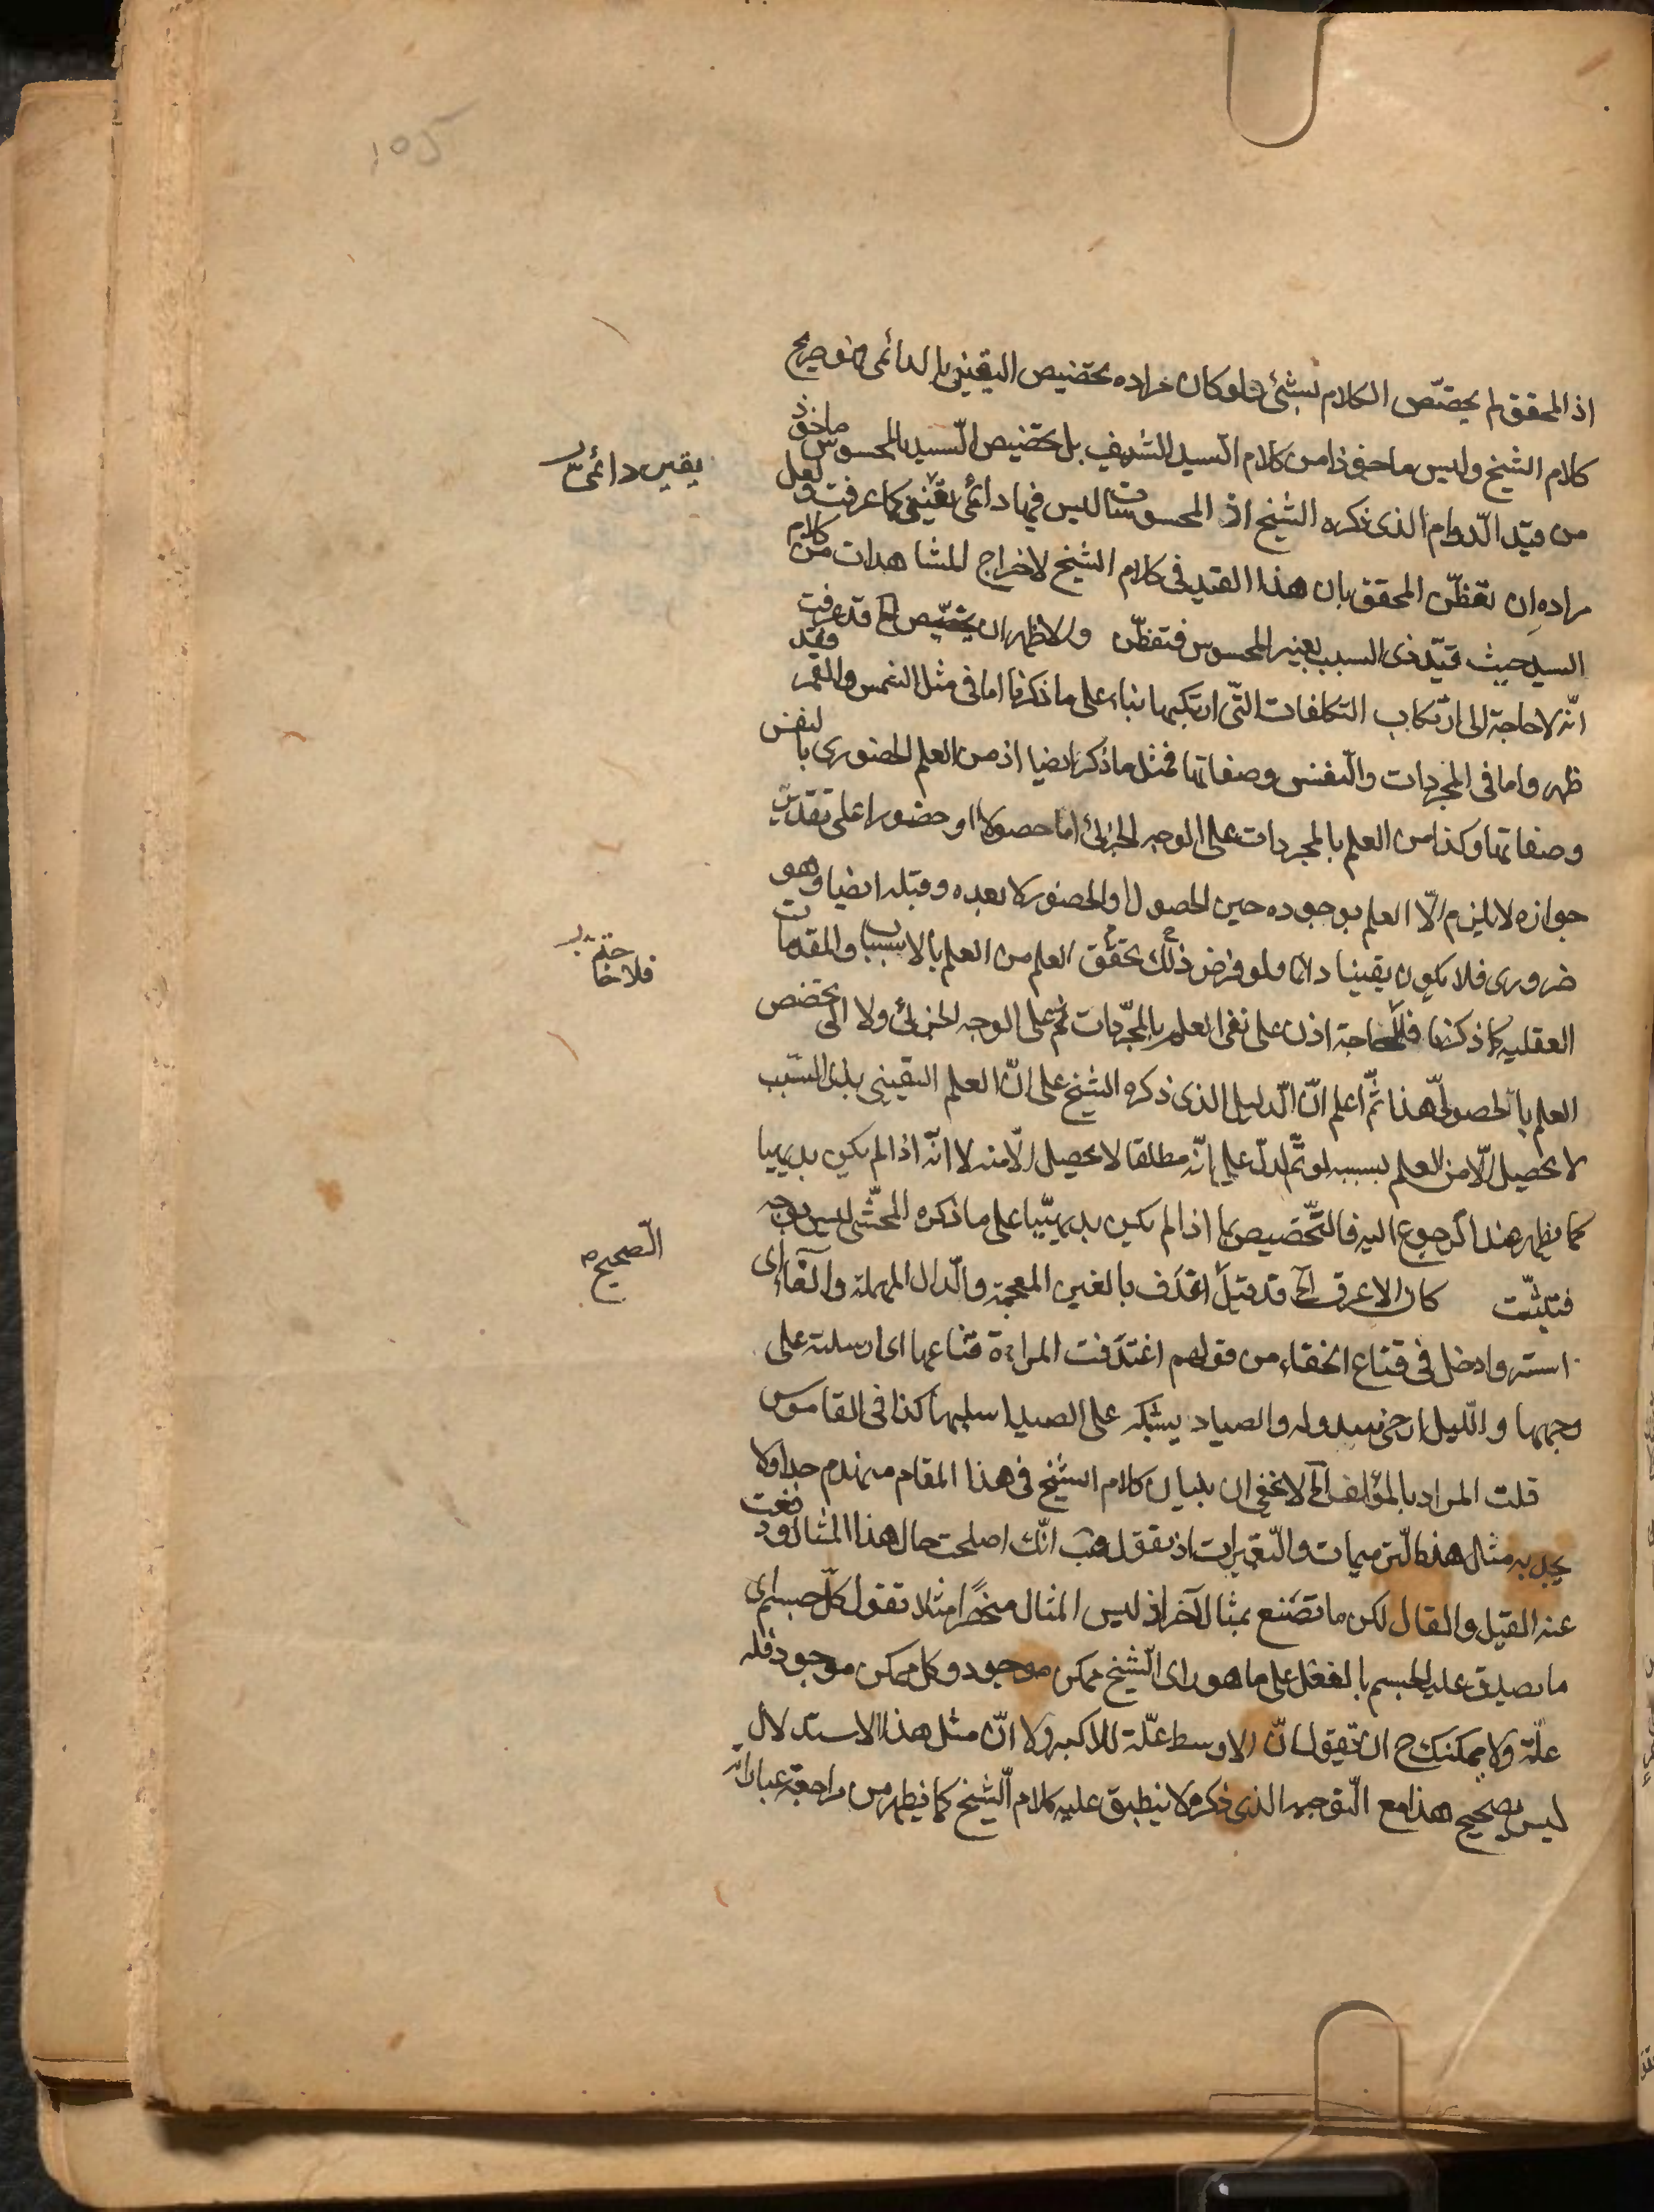 ١٥٤
اذ المحقق لم يخصّص الكلام بشئ فلو كان مراده تخصيص اليقيني بالدائمى فهو صريح
كلام الشيخ وليس ماخوذا من كلام السيد الشريف بل تخصيص السيد بالمحسوس ماخوذ
من قيد الدّوام الذى ذكره الشيخ اذ المحسوسات ليس فيها دائمى يقينى كما عرفت ولعل
يقين دائمىّ
مراده ان تفطّن المحقق بان هذا القيد فى كلام الشيخ لاخراج المشاهدات من كلام
السيد حيث قيّد ذى السبب بغير المحسوس فتفطّن والاظهر ان يخصّص الخ قد عرفت
انّه لا حاجة الى ارتكاب التكلفات التّى ارتكبها بناء على ما ذكرنا اما فى مثل الشمس والقمر فقد
ظهر واما فى المجردات والنفس وصفاتها فمثل ما ذكر ايضا اذ من العلم الحضورى بالنفس
وصفاتها وكذا من العلم بالمجردات على الوجه الجزئى اما حصولا او حضورا على تقدير
جوازه لا يلزم الّا العلم بوجوده حين الحصول والحضور لا بعده وقبله ايضا وهو
ضرورى فلا يكون يقينا دائما ولو فرض ذلك تحقّق العلم من العلم بالاسباب والمقدمات
العقليه كما ذكرنا فلا حاجة اذن على نفى العلم بالمجرّدات ثم على الوجه الجزئى ولا الى تخصص
فلا حاجة
العلم بالحصولىّ هذا ثمّ اعلم انّ الدليل الذى ذكره الشيخ على انّ العلم اليقينى بذى السّبب
لا يحصل الّا من العلم بسببه لو تمّ لدلّ على انّه مطلقا لا يحصل الّا منه لا انّه اذا لم يكن بديهيا
كما يظهر عند الرجوع اليه فالتّخصيص بما اذا لم يكن بديهيّا على ما ذكره المحشّى ليس بوجه
فتثبّت كان الاعرف الخ قد قيل اغدف بالغين المعجمة والدّال المهملة والفاء اى
الصحيح
استر وادخل فى قناع الخفاء من قولهم اغتدفت المراءة قناعها اى ارسلته على
وجهها والليل ارخى سدوله والصياد يشبكه على الصيد اسلبها كذا فى القاموس
قلت المراد بالمؤلف الخ لا يخفى ان بنيان كلام الشيخ فى هذا المقام منهدم جدا ولا
يجد به مثال هذه الترميمات والتّغييرات اذ نقول هب انّك اصلحت حال هذا المثال ودفعت
عنه القيل والقال لكن ما تصنع بمثال آخر اذ ليس المثال منحصرا مثلا نقول كلّ جسم اى
ما يصدق عليه الجسم بالفعل على ما هو راى الشيخ ممكن موجود وكل ممكن موجود فله
علّة ولا يمكنك ح ان تقول انّ الاوسط علّة للاكبر ولا انّ مثل هذا الاستدلال
ليس بصحيح هذا مع التوجيه الذى ذكره لا ينطبق عليه كلام الشيخ كما يظهر من مراجعة عباراته